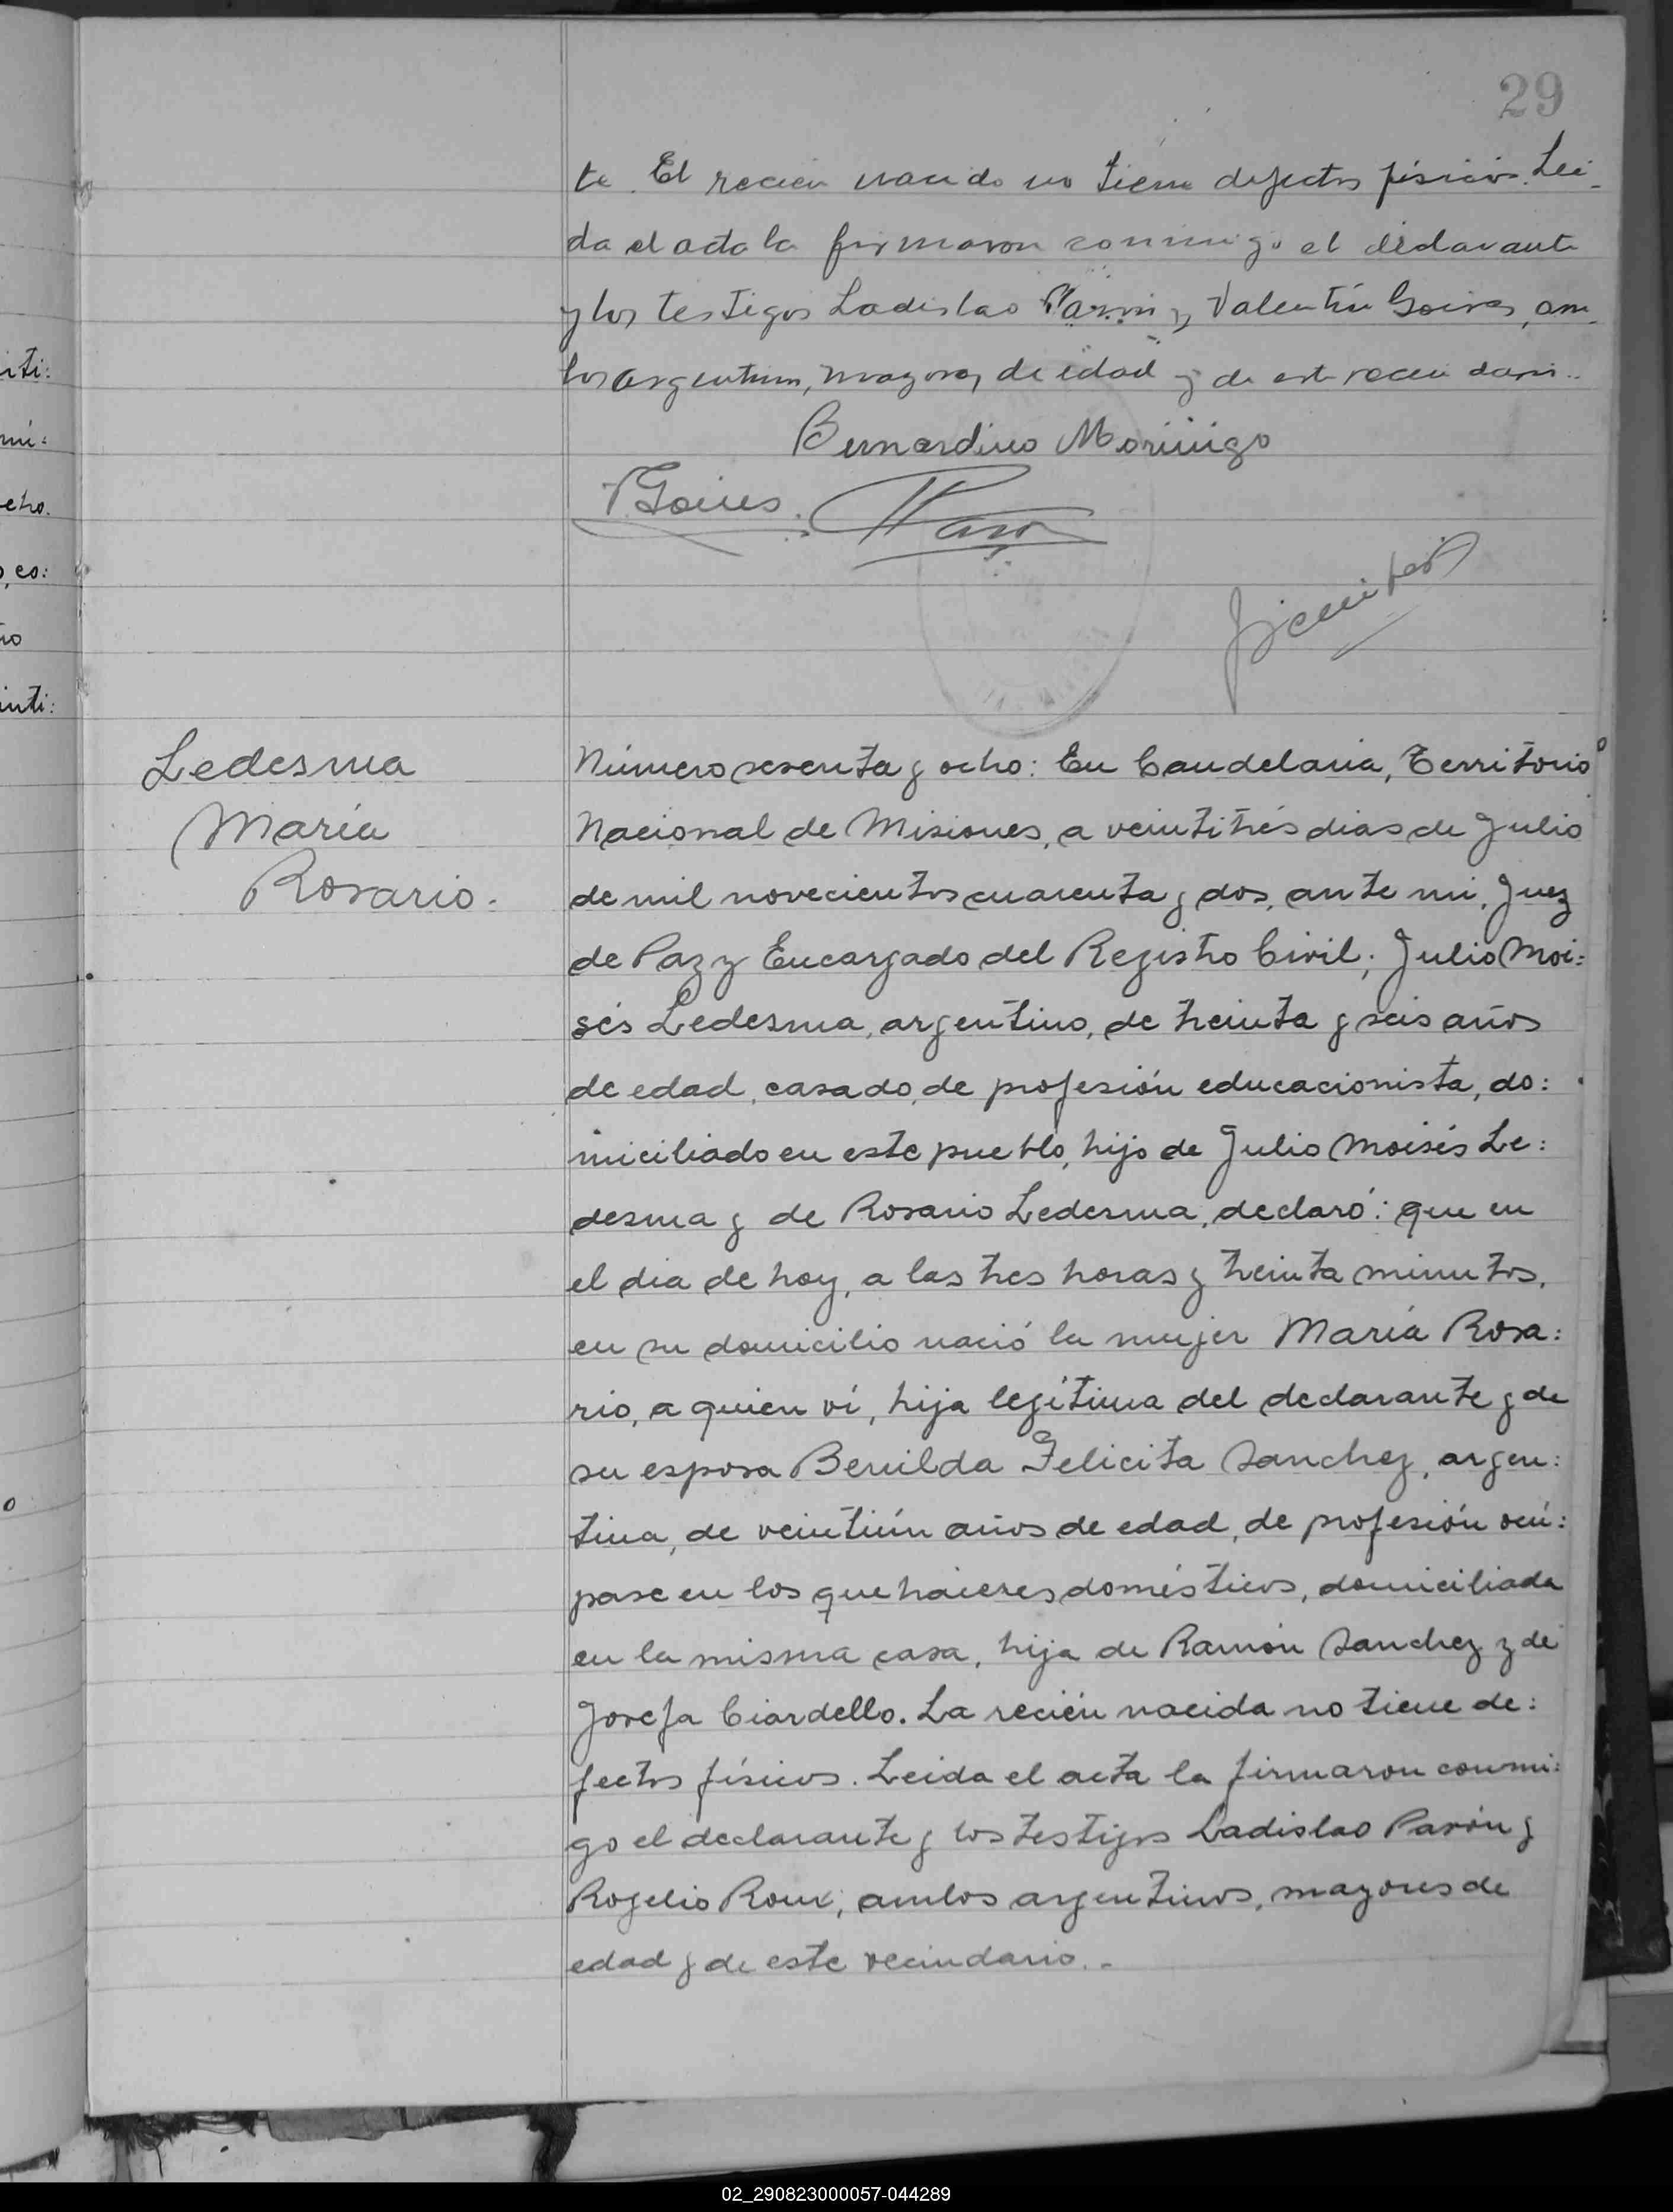 29
te. El recien nacido no tiene defectos físicos. Lei-
da el acta la firmaron conmigo el declarante
y los testigos Ladislao Pavón y Valentín Goires, am-
bos argentinos, mayores de edad y de este vecindario.
Bernardino Moriñigo
VGoires.
iti:
mi:
echo.
o, co:
no
inti:
Ledesma
María
Rosario.
Número sesenta y ocho: En Candelaria, Territorio
Nacional de Misiones, a veintitrés dias de Julio
de mil novecientos cuarenta y dos, ante mi, Juez
de Paz y Encargado del Registro Civil; Julio Moi:
sés Ledesma, argentino, de treinta y seis años
de edad, casado, de profesión educacionista, do:
miciliado en este pueblo, hijo de Julio Moisés Le:
desma y de Rosario Ledesma, declaró: que en
el dia de hoy, a las tres horas y treinta minutos,
en su domicilio nació la mujer María Rosa:
rio, a quien ví, hija legítima del declarante y de
su esposa Benilda Felicita Sanchez, argen:
tina, de veintiún años de edad, de profesión ocú:
pase en los quehaceres domésticos, domiciliada
en la misma casa, hija de Ramón Sanchez y de
Josefa Ciardello. La recién nacida no tiene de:
fectos físicos. Leida el acta la firmaron conmi:
go el declarante y los testigos Ladislao Pavón y
Rogelio Roux; ambos argentinos, mayores de
edad y de este vecindario.-
02_290823000057-044289